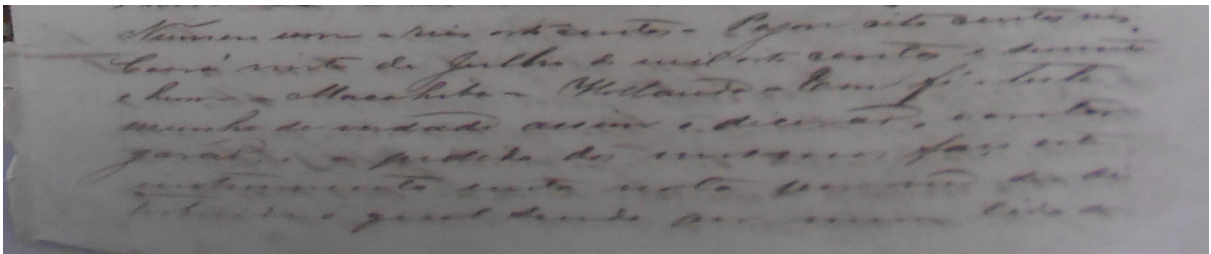 Numero um - Reis oito centos - Pagou oito centos reis.
Ceará vinte de Julho de mil oito centos e secenta
e hum - Macahiba - Hollanda - Em fé e teste
munho de verdade assim o diceraõ, e outor
garaõ e a pedido dos mesmos faço este
instrumento nesta nota
o qual sendo por mim lido